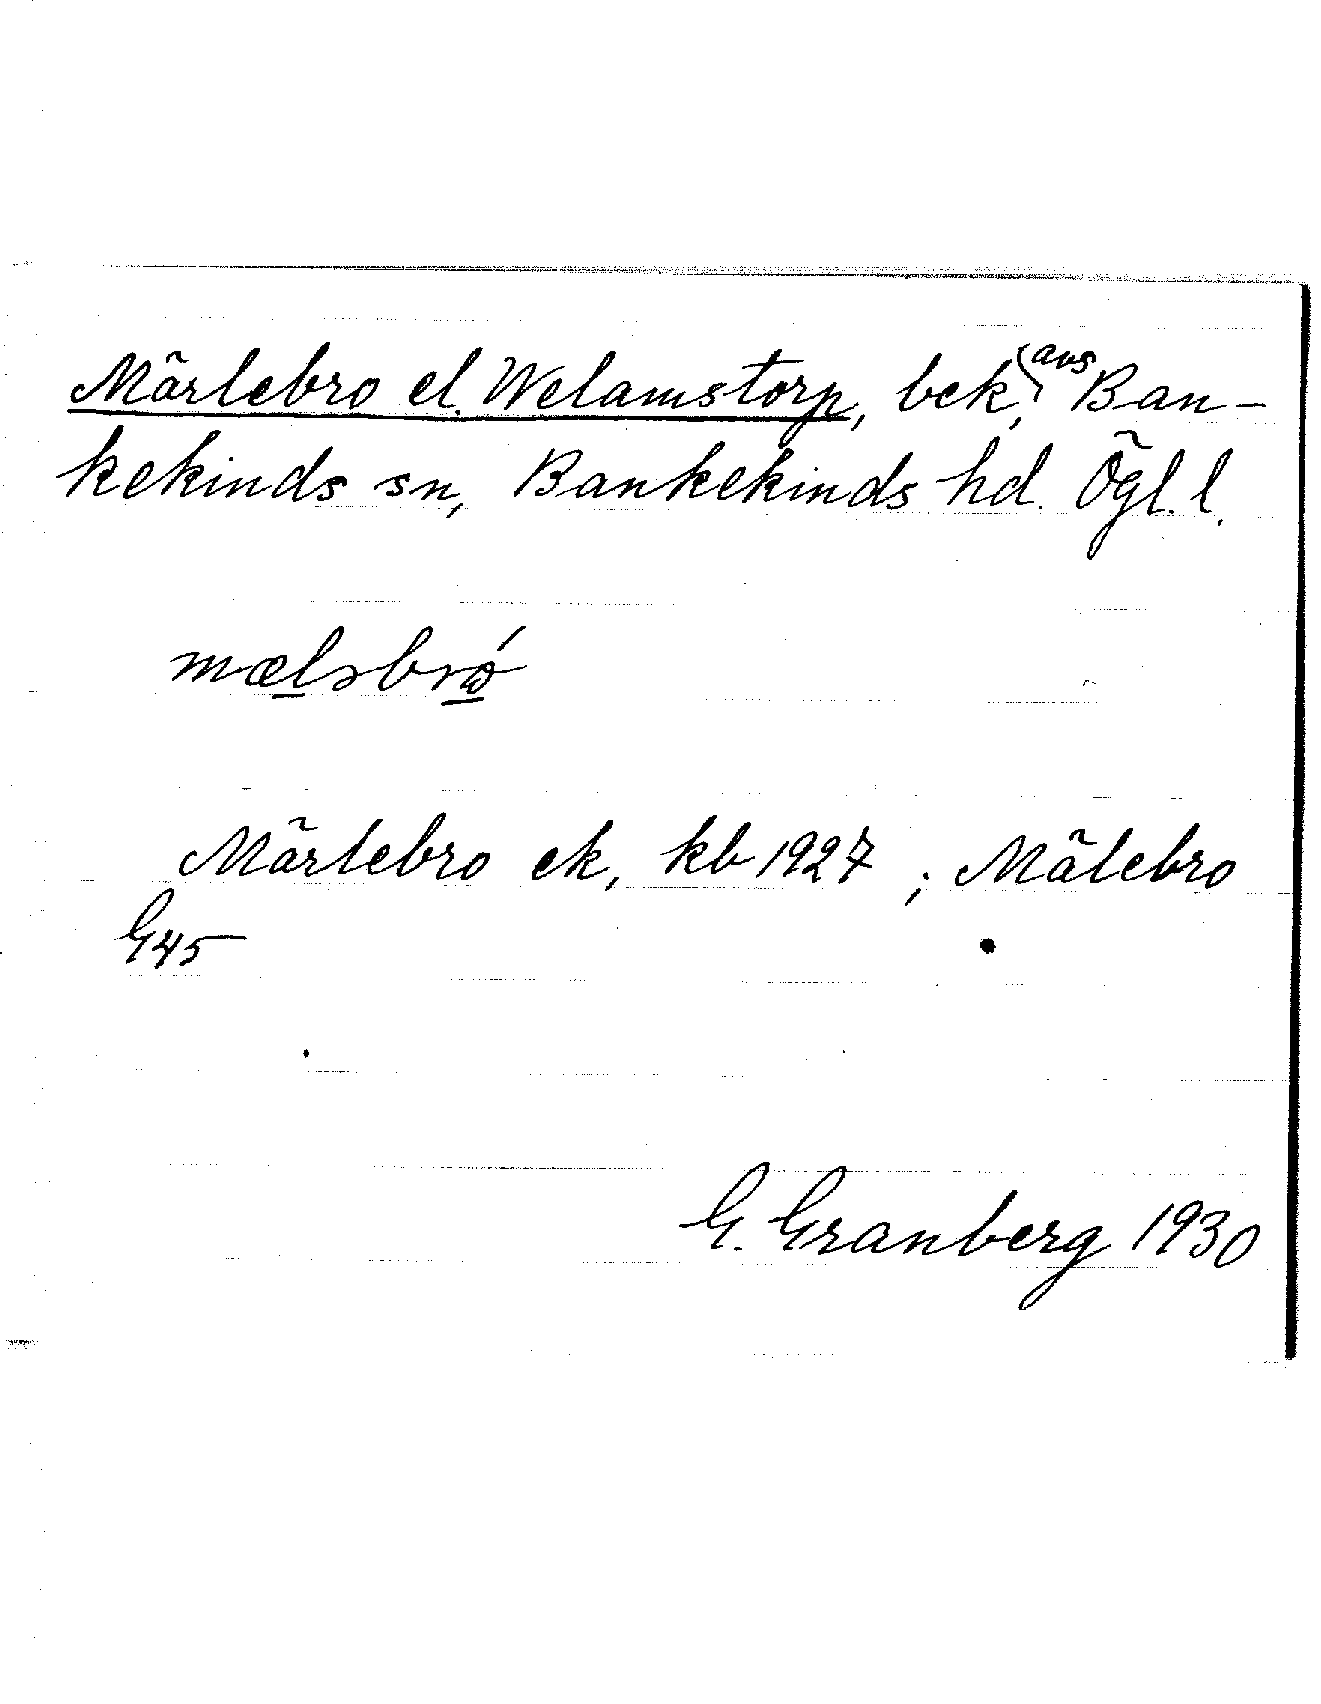 Märlebro el. Welamstorp, bek., avs Ban-
kekinds sn, Bankekinds hd. Ögl. l.
mælsbró
Märlebro ek, kb 1927 ; Mälebro
G45
G. Granberg 1930